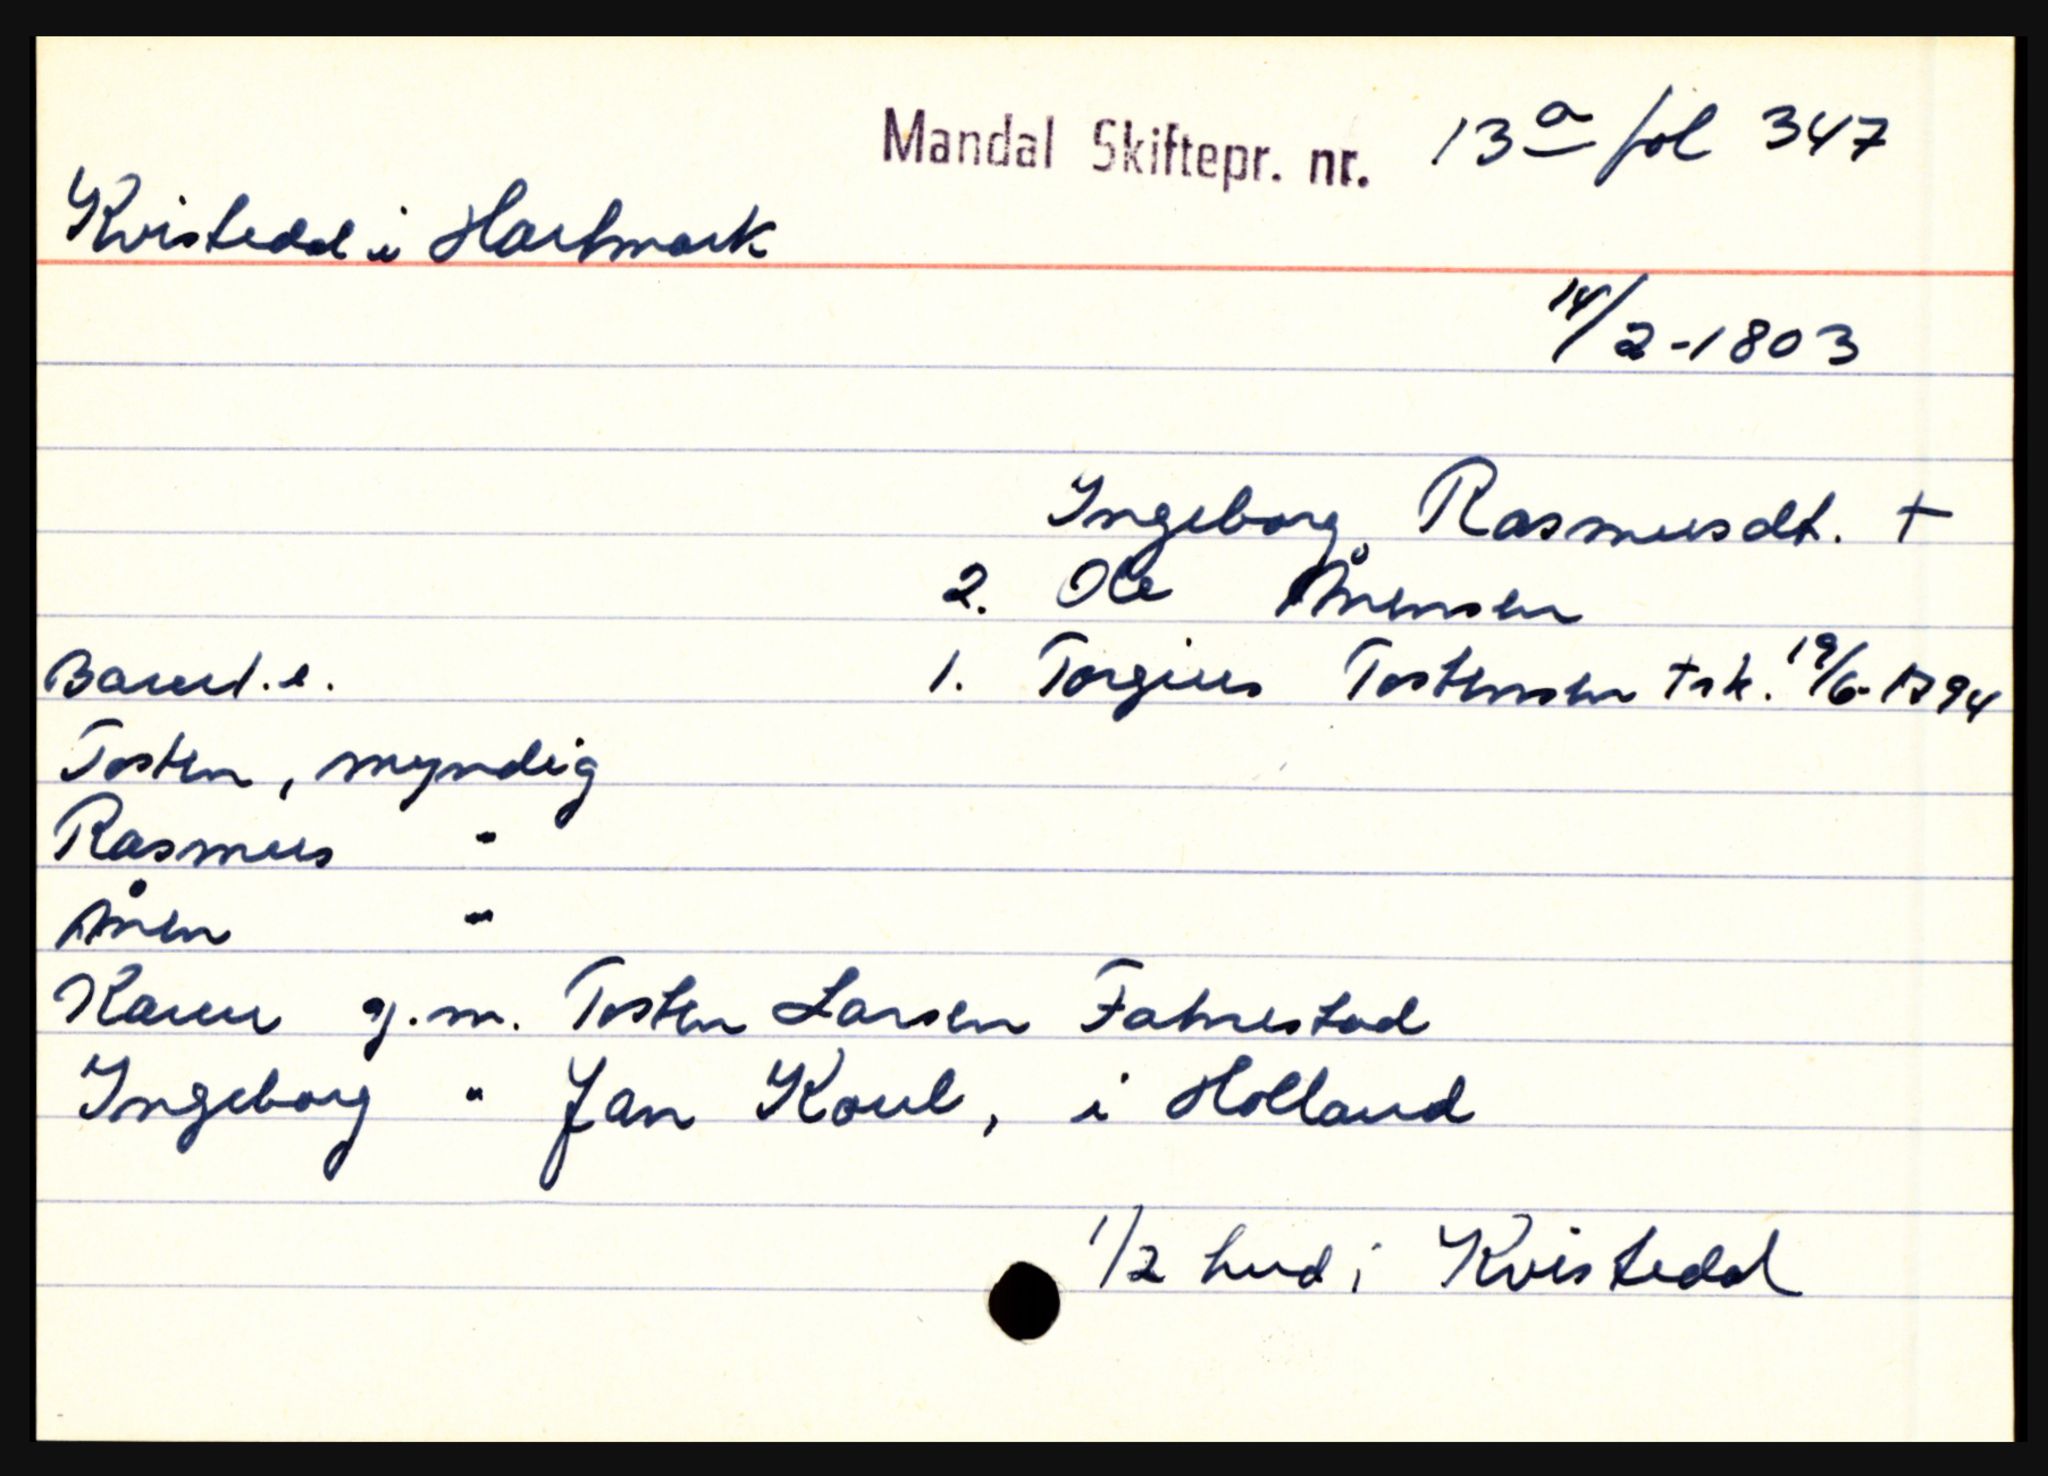 Mandal Skiftepr. nr. 13a fol 347
Kvistedd i Hartmark
14/2-1803
Ingeborg Rasmusdt. +
2. Ole Ånensen
Barn 1. e. 1. Torgius Tostensen + sk. 19/6-1794
Tosten, myndig
Rasmus "
Ånen "
Karen g.m. Tosten Larsen Fahrestad
Ingeborg " Jan Koul, i Holland
1/2 hud i Kvistedd